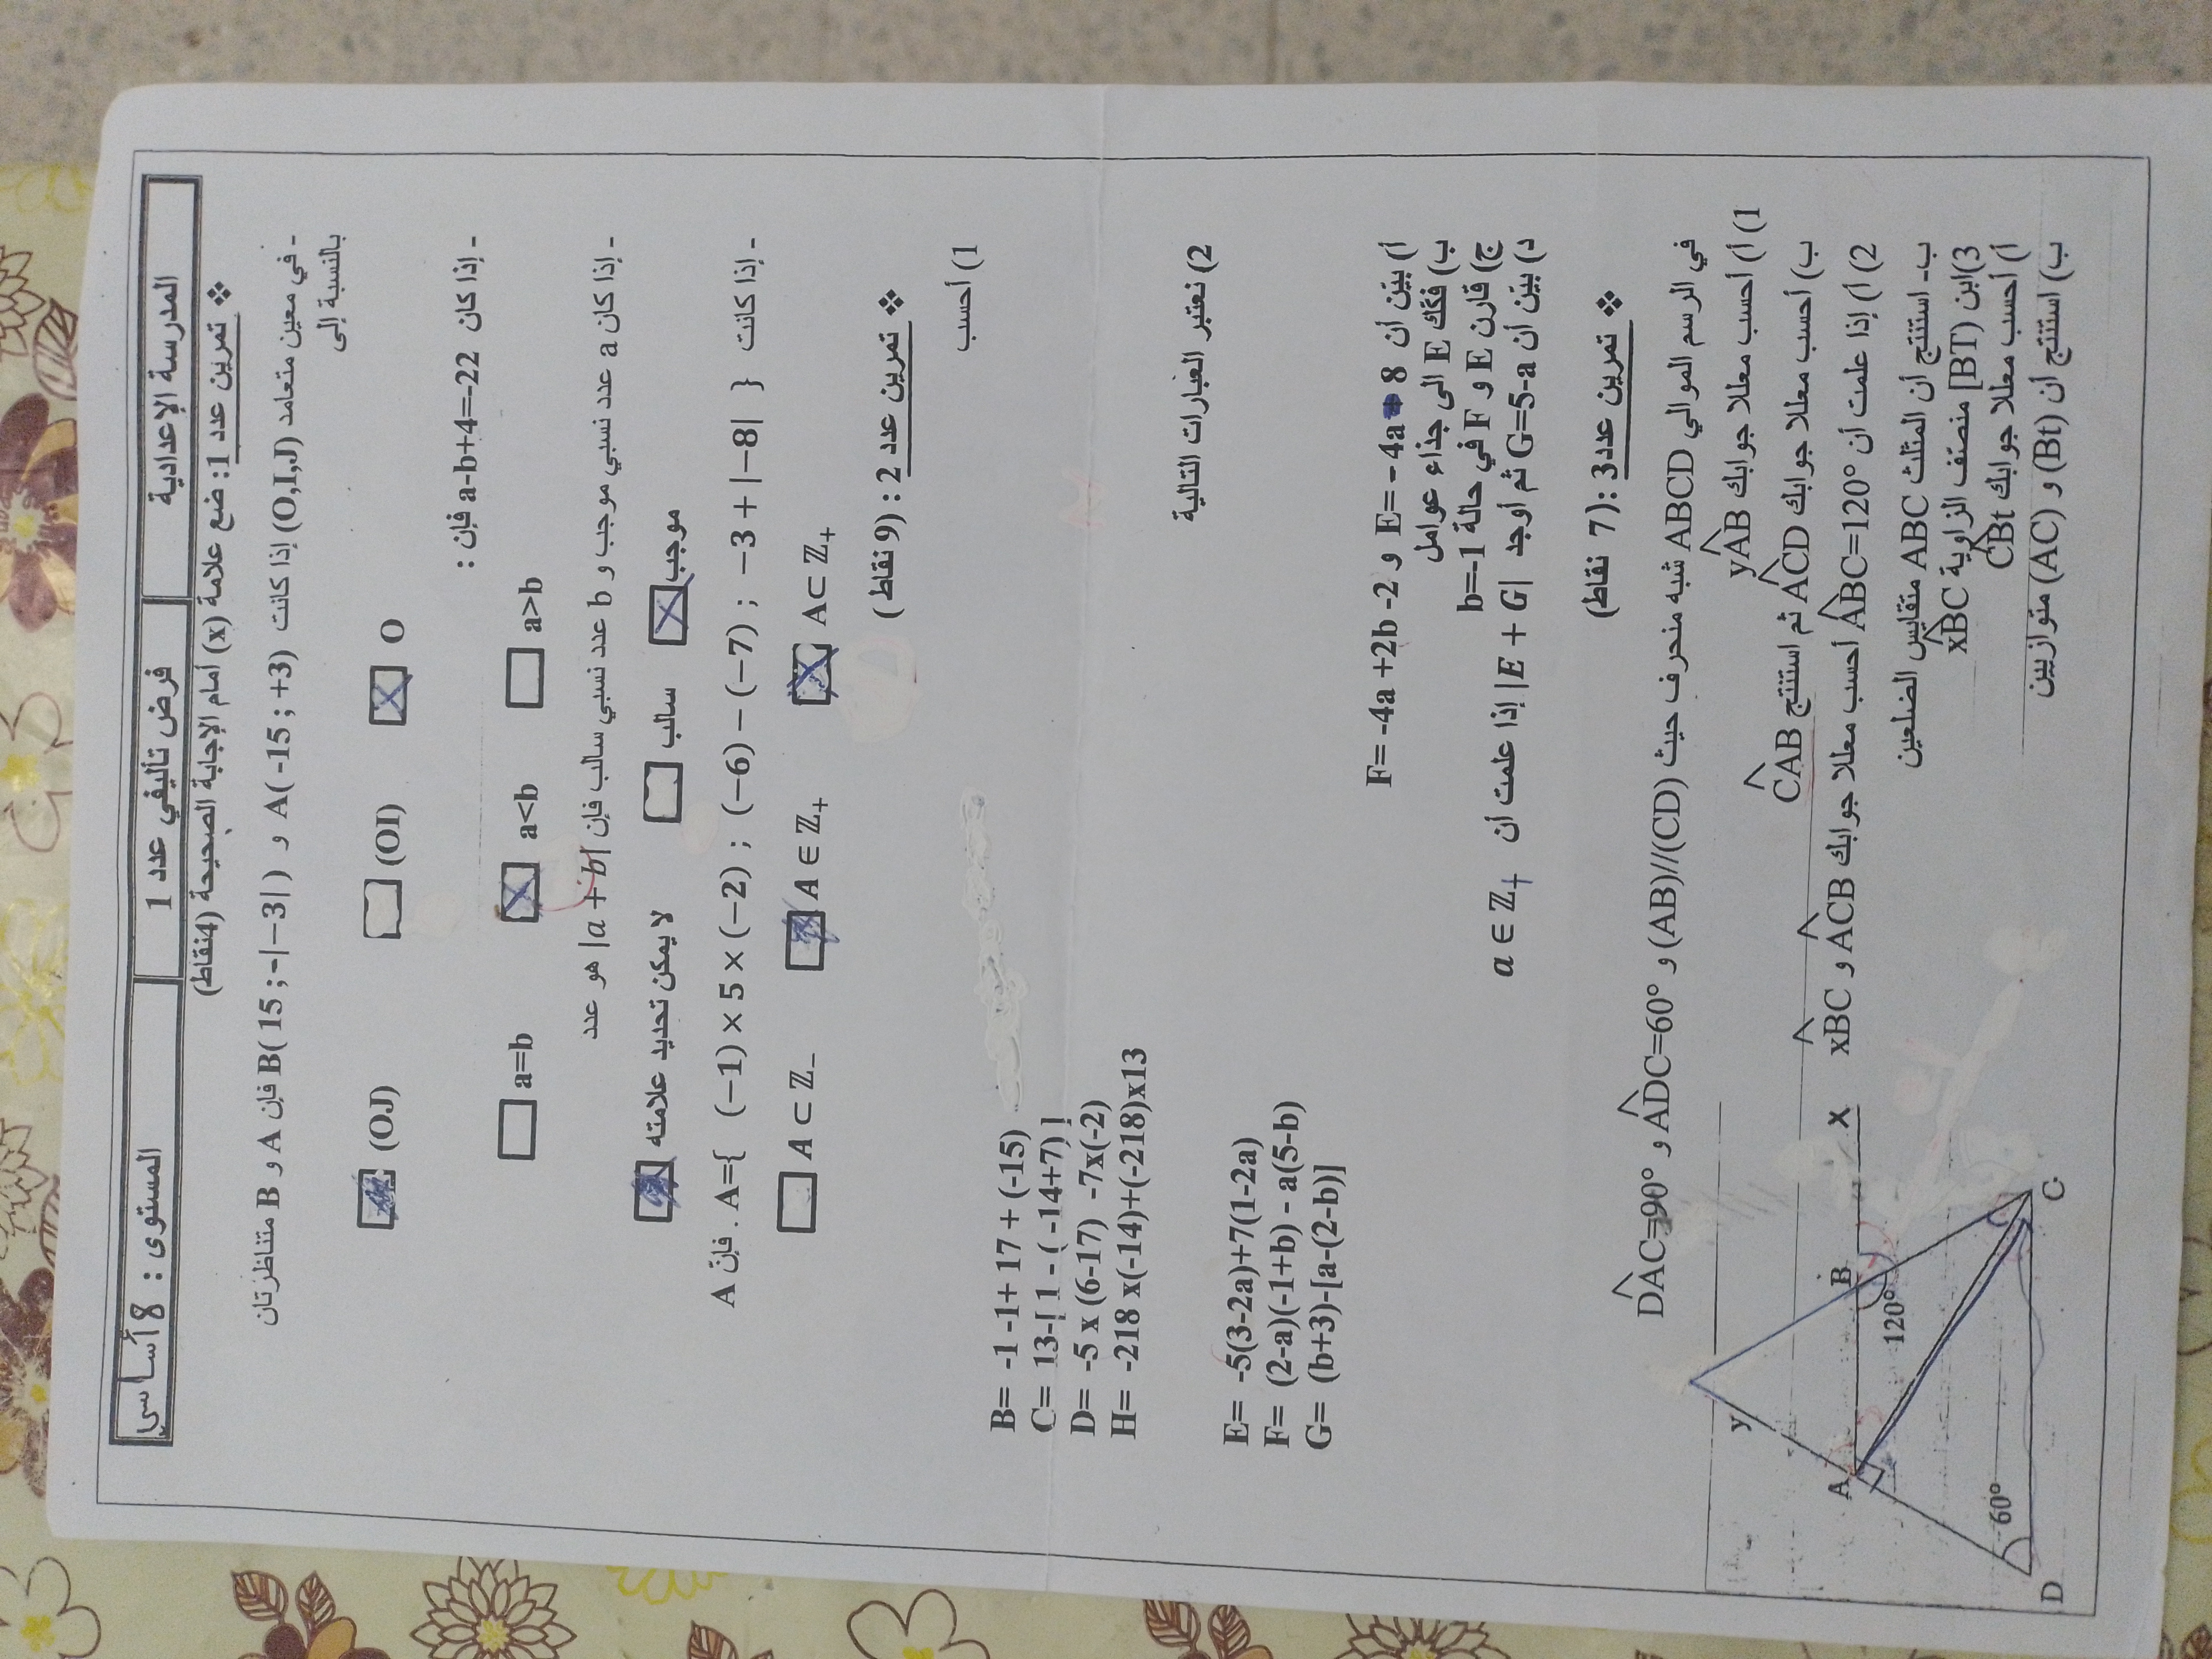 المدرسة الإعدادية فرض تأليفي عدد 1 المستوى : 8 أساسي
❖ تمرين عدد 1: ضع علامة (x) أمام الإجابة الصحيحة (4نقاط)
- في معين متعامد (O,I,J) إذا كانت A( -15 ; +3) و B( 15 ; -|-3| ) فإن A و B متناظرتان
بالنسبة إلى
O (OI) (OJ)
- إذا كان a-b+4=-22 فإن :
a>b a<b a=b
- إذا كان a عدد نسبي موجب و b عدد نسبي سالب فإن |a + b| هو عدد
موجب سالب لا يمكن تحديد علامته
- إذا كانت A={ (−1) × 5 × (−2) ; (−6) − (−7) ; −3 + |−8| } . فإنّ A
A⊂ ℤ₊ A ∈ ℤ₊ A ⊂ ℤ₋
❖ تمرين عدد 2 : (9 نقاط )
1) أحسب
B= -1 -1+ 17 + (-15)
C= 13-[ 1 - ( -14+7) ]
D= -5 x (6-17) -7x(-2)
H= -218 x(-14)+(-218)x13
2) نعتبر العبارات التالية
E= -5(3-2a)+7(1-2a)
F= (2-a)(-1+b) - a(5-b)
G= (b+3)-[a-(2-b)]
أ) بيّن أن E= - 4a 8 و F= -4a +2b -2
ب) فكّك E الى جذاء عوامل
ج) قارن E و F في حالة b=-1
د) بيّن أن G=5-a ثم أوجد |E + G| إذا علمت أن a ∈ ℤ₊
❖ تمرين عدد3 :( 7 نقاط)
في الرسم الموالي ABCD شبه منحرف حيث (AB)//(CD) و ADC=60° و DAC=90°
1) أ) أحسب معللا جوابك yAB
ب) أحسب معللا جوابك ACD ثم استنتج CAB
2) أ) إذا علمت أن ABC=120° أحسب معللا جوابك ACB و xBC
ب- استنتج أن المثلث ABC متقايس الضلعين
3)ابن [BT) منصف الزاوية xBC
أ) أحسب معللا جوابك CBt
ب) استنتج أن (Bt) و (AC) متوازيين
y
A
B
x
120°
60°
D
C